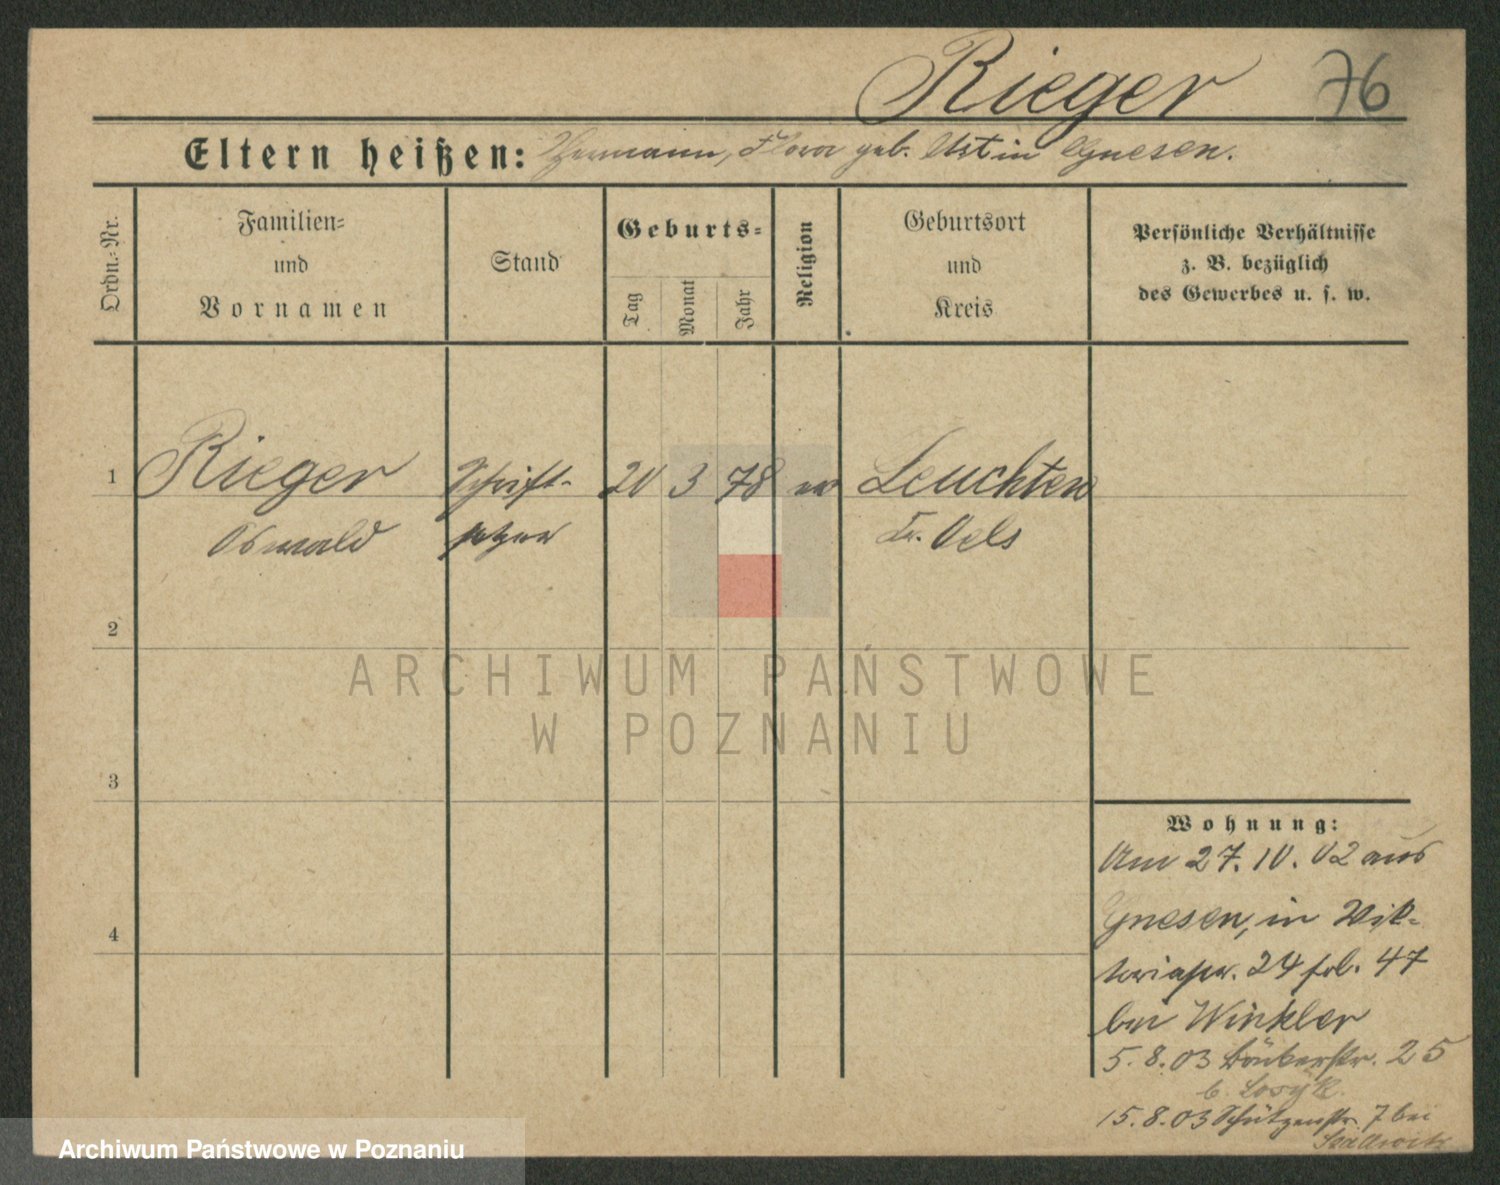 Rieger 76
Eltern heißen: Hermann, Flora geb. Ust in Gnesen.
Ordn.-Nr.
Familien-
und
Vornamen
Stand
Geburts-
Tag
Monat
Jahr
Religion
Geburtsort
und
Kreis
Persönliche Verhältnisse
z. B. bezüglich
des Gewerbes u. s. w.
1 Rieger Schrift- 20 3 78 ev Leuchten
Oswald setzer Kr. Oels
2
ARCHIWUM PAŃSTWOWE
W POZNANIU
3
Wohnung:
Am 27. 10. 02 aus
4
Gnesen, in Vik-
toriastr. 24 fol. 47
bei Winkler
5. 8. 03 25
b.
15. 8. 03 Schützenstr. 7 bei
Archiwum Państwowe w Poznaniu